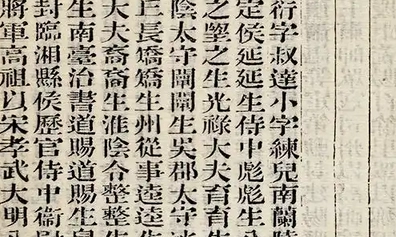 衍字叔達小字練兒南蘭陵
定侯延延生侍中彪彪生公
之望之生光祿大夫育育生
陰太守闡闡生吳郡太守冰
丘長矯矯生州從事逵逵生
大夫裔裔生淮陰令整整生
生南臺治書道賜道賜生皇
封臨湘縣侯歷官侍中衞尉
將軍高祖以宋孝武大明